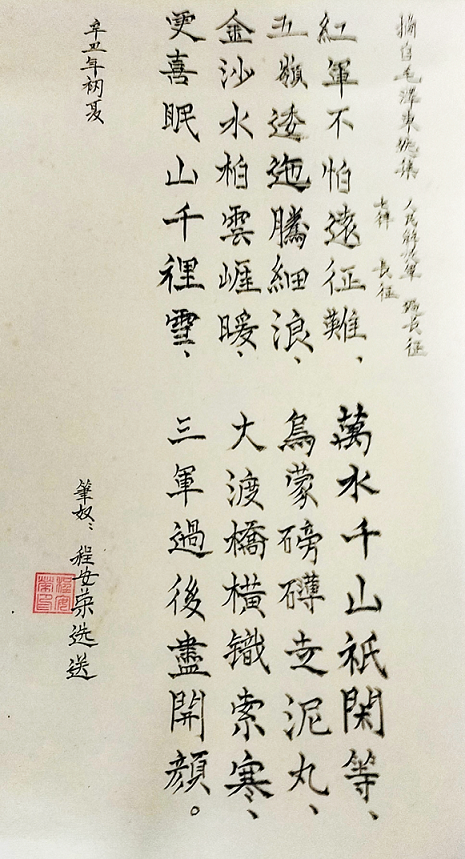 摘自毛澤東詩集 人民解放軍 長征
七律 長征
紅軍不怕遠征難、萬水千山祇閑等、
五嶺逶迤騰細浪、烏蒙磅礴走泥丸、
金沙水柏雲崕暖、大渡橋橫鐵索寒、
更喜眠山千裡雪、三軍過後盡開顔。
辛丑年初夏
筆奴、程安榮选送
程安榮印